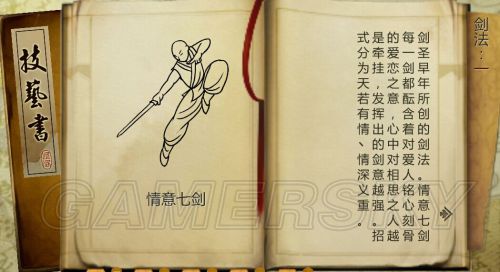 剑法：一
剑圣早年所创的剑法。情意七剑
每一剑都酝含着对爱人铭心刻骨
的爱恋之意，心中对相思之人越
是牵挂，发挥出的剑意越强。招
式分为天若有情、情深义重。
情意七剑
技藝書
GAMERSKY